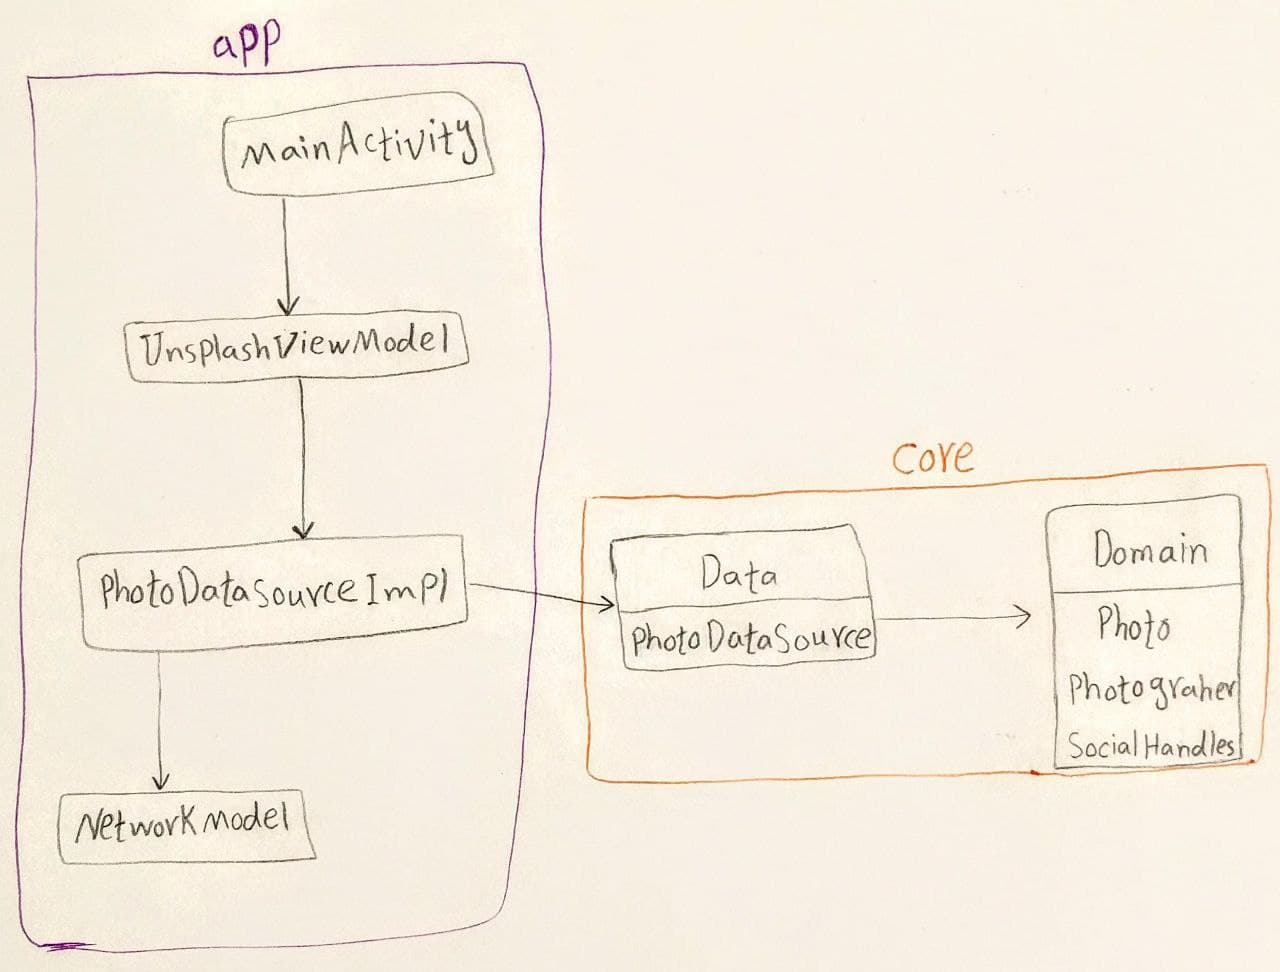 app
MainActivity
UnsplashViewModel
PhotoDataSourceImpl
NetworkModel
Core
Data
PhotoDataSource
Domain
Photo
Photograher
SocialHandles